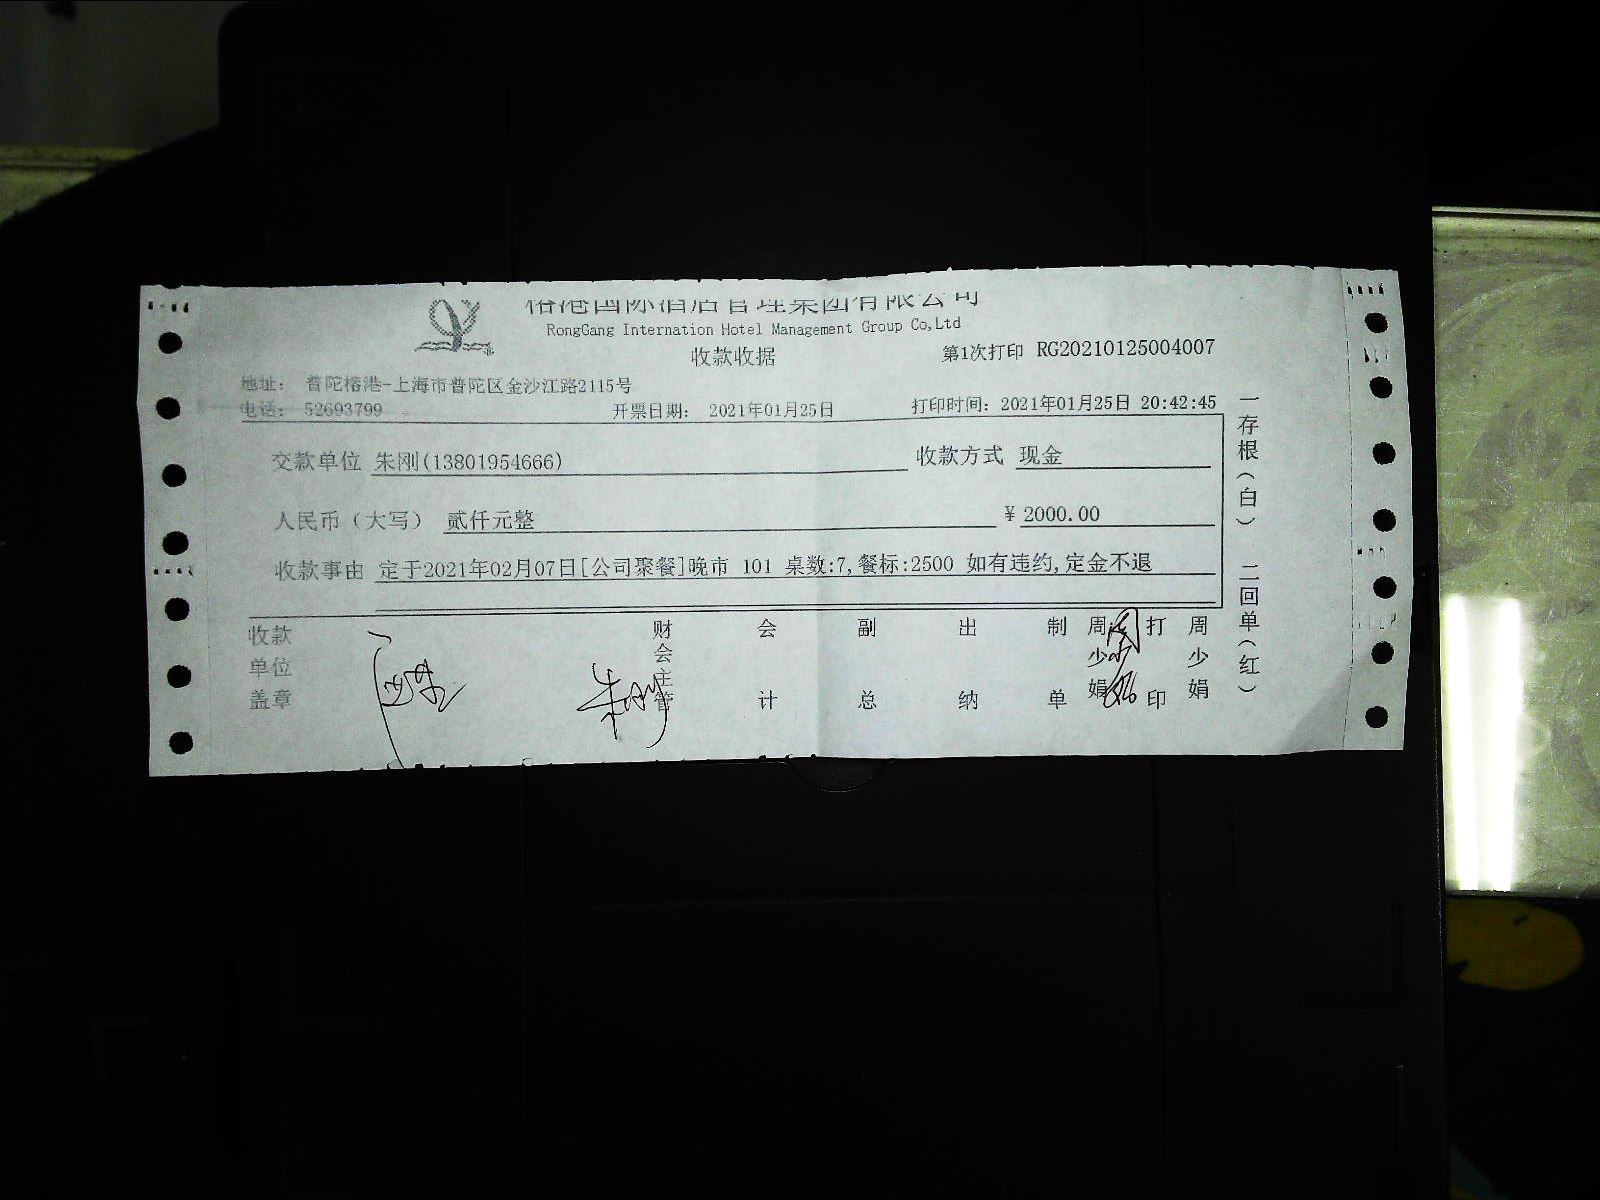 榕港国际酒店管理集团有限公司
RongGang Internation Hotel Management Group Co,Ltd
收款收据
第1次打印 RG20210125004007
地址： 普陀榕港-上海市普陀区金沙江路2115号
电话： 52693799 开票日期： 2021年01月25日 打印时间：2021年01月25日 20:42:45
交款单位 朱刚(13801954666) 收款方式 现金
人民币（大写） 贰仟元整 ¥ 2000.00
收款事由 定于2021年02月07日[公司聚餐]晚市 101 桌数:7,餐标:2500 如有违约,定金不退
收款单位盖章
朱刚
财会主管
会计
副总
出纳
制单 周少娟
周少娟
打印 周少娟
一存根（白） 二回单（红）